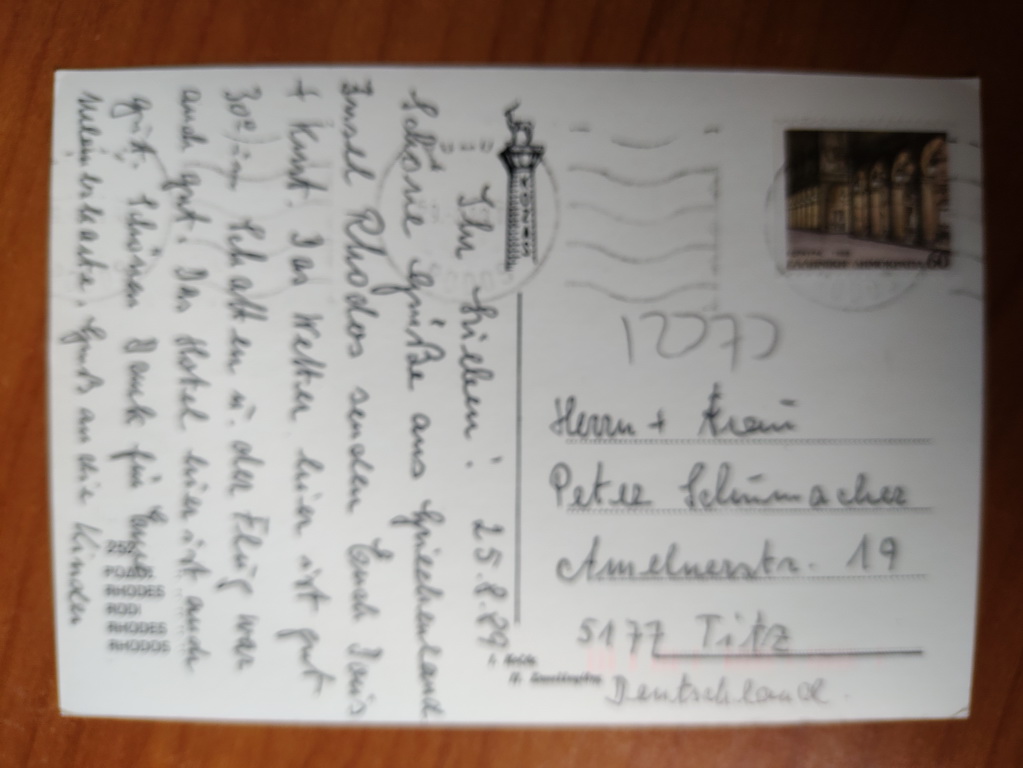 Ihr Lieben! 25.8.89
Schöne Grüße aus Griechenland
Insel Rhodos senden Euch Doris
+ Kurt. Das Wetter hier ist gut
30° im Schatten u. der Flug war
auch gut. Das Hotel hier ist auch
gut. Schönen Dank für
Grüß an die Kinder
252
ΡΟΔΟΣ
RHODES
RODI
RHODES
RHODOS
60
12070
Herrn + Frau
Peter Schumacher
Amelnerstr. 19
5177 Titz
Deutschland.